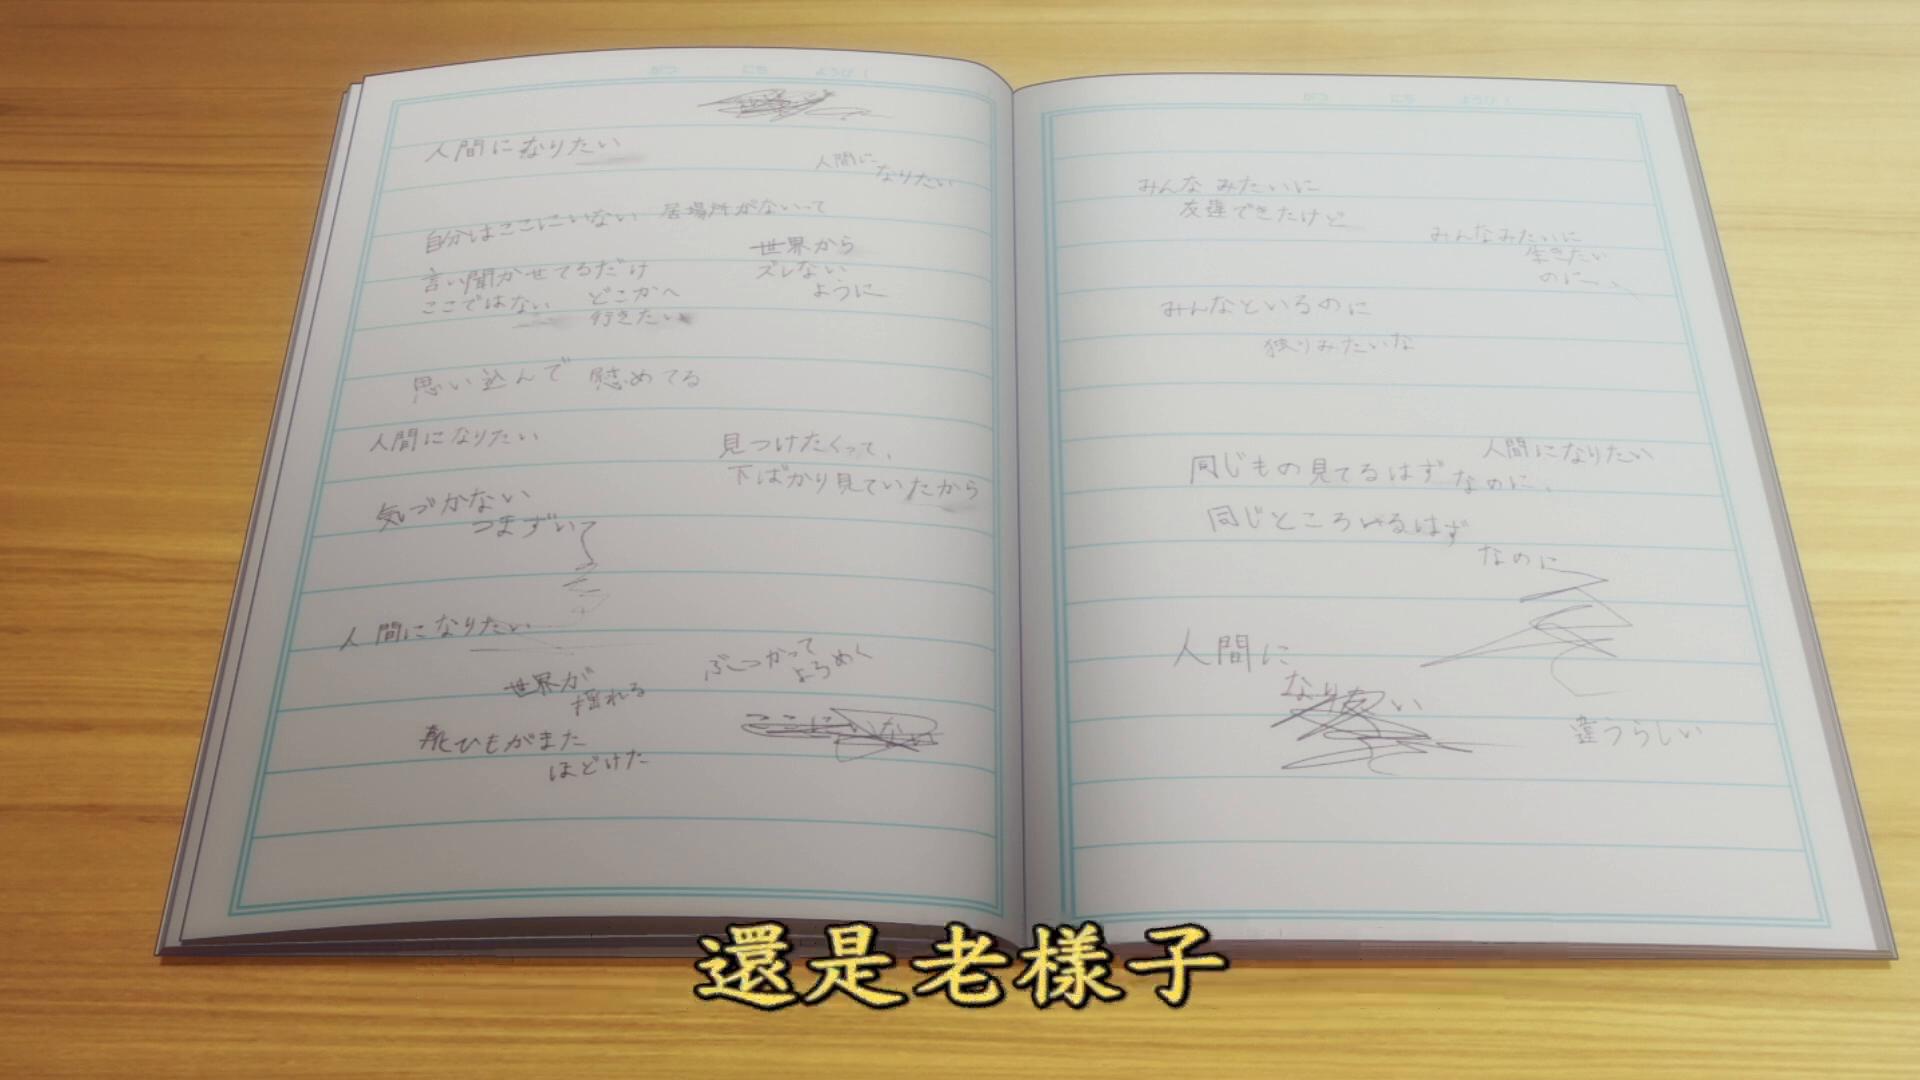 がつ にち ようび
人間になりたい
人間に
なりたい
自分はここにいない 居場所がないって
言い聞かせてるだけ
世界から
ズレない
ように
ここではない どこかへ
行きたい
思い込んで 慰めてる
人間になりたい
見つけたくって、
下ばかり見ていたから
気づかない
つまずいて
人間になりたい
世界が
揺れる
ぶつかって
よろめく
靴ひもがまた
ほどけた
ここにいない
がつ にち ようび
みんな みたいに
友達できたけど
みんなみたいに
生きたい
のに、
みんなといるのに
独りみたいな
人間になりたい
同じもの見てるはず なのに、
同じところいるはず
なのに
人間に
なりたい
違うらしい
還是老樣子